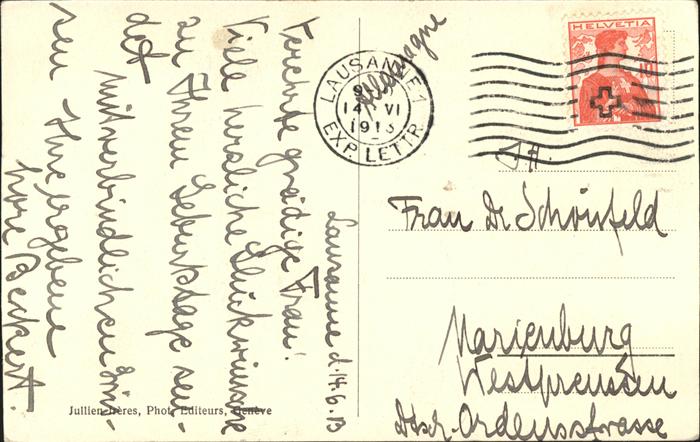 Lausanne d. 14.6.13
Verehrte gnädige Frau!
Viele herzliche Glückwünsche
zu Ihrem Geburtstage sen-
det
mit verbindlichen Grüs-
sen Ihre ergebene
Lore Beckert.
Allemagne
LAUSANNE 1
14 VI
1913
EXP. LETTR.
HELVETIA
10
Frau Dr. Schönfeld
Marienburg
Westpreussen
Dtsch-Ordensstrasse
Jullien frères, Phot. Editeurs, Genève